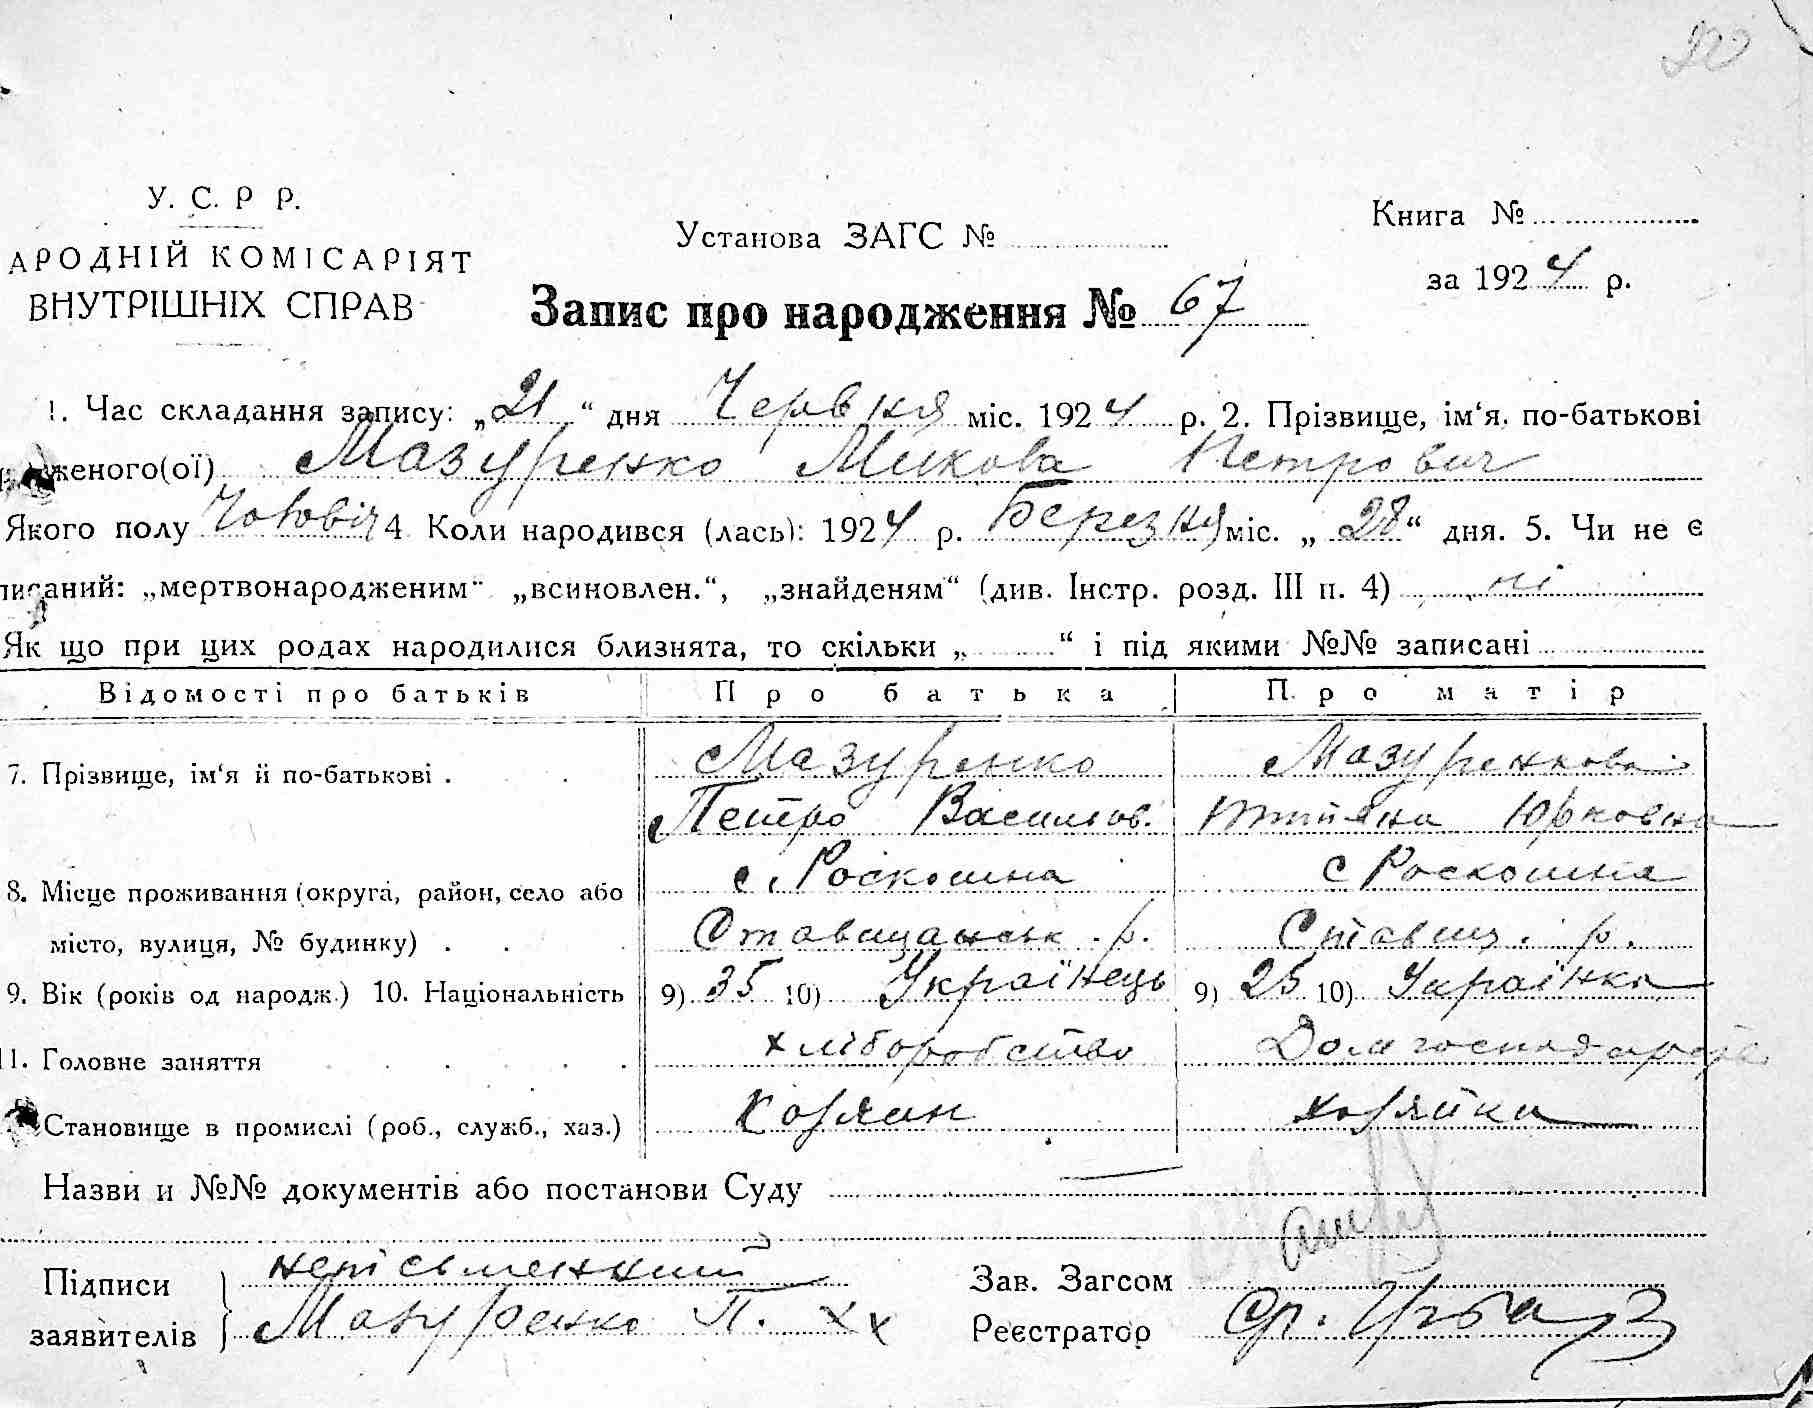 У. С. Р Р.
АРОДНІЙ КОМІСАРІЯТ
ВНУТРІШНІХ СПРАВ
Установа ЗАГС №
Книга №
за 1924 р.
Запис про народження № 67
1. Час складання запису: „21“ дня Червня міс. 1924 р. 2. Прізвище, ім‘я, по-батькові
женого(ої) Мазуренко Микола Петрович
Якого полу Чоловіч 4 Коли народився (лась): 1924 р. Березня міс. „28“ дня. 5. Чи не є
писаний: „мертвонародженим“ „всиновлен.“, „знайденям“ (див. Інстр. розд. III п. 4) ні
Як що при цих родах народилися близнята, то скільки „ “ і під якими №№ записані
Відомості про батьків Про батька Про матір
7. Прізвище, ім‘я й по-батькові . Мазуренко Мазуренкова
Петро Васильов. Тетяна Юрковна
8. Місце проживання (округа, район, село або с. Роскошна с Роскошна
місто, вулиця, № будинку) . Ставищанськ. р. Ставищ. р.
9. Вік (років од народж.) 10. Національність 9) 35 10) Українець 9) 25 10) Українка
11. Головне заняття хліборобство Дом господарство
Становище в промислі (роб., служб., хаз.) Хозяин хозяйка
Назви и №№ документів або постанови Суду
Підписи неписьменний Зав. Загсом
заявителів Мазуренко П. хх Реєстратор